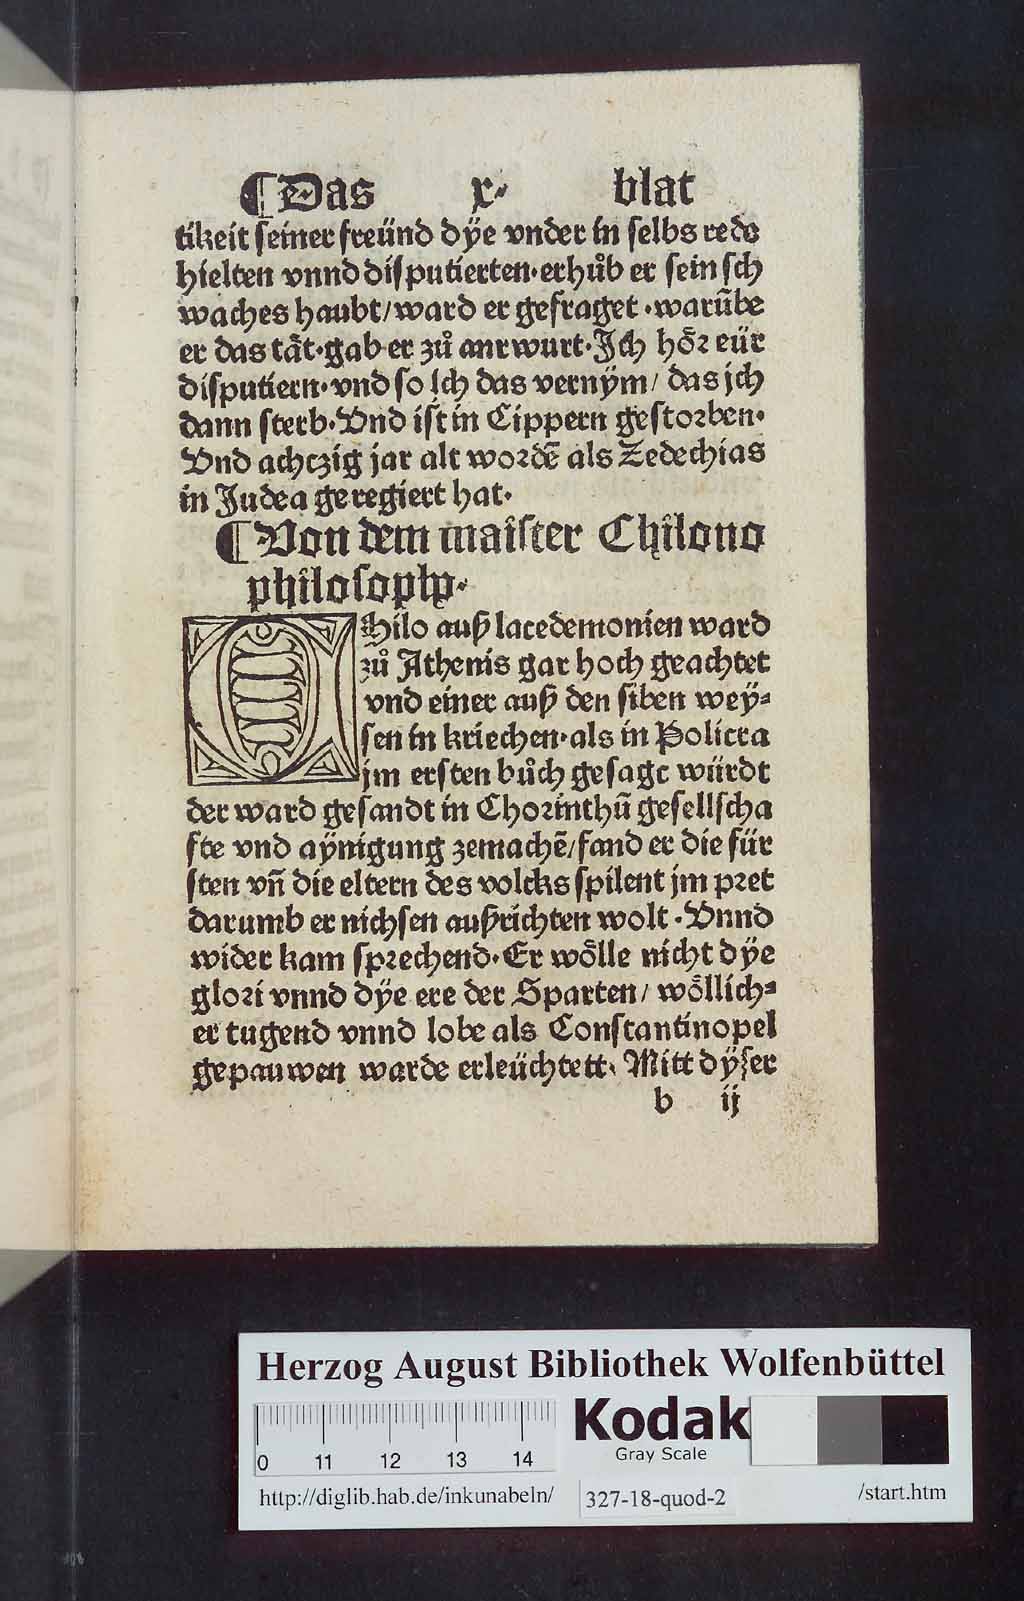 ¶Das x· blat
tikeit seiner freünd dÿe vnder in selbs rede
hielten vnnd disputierten·erhůb er sein sch
waches haubt/ward er gefraget·warūbe
er das tåt·gab er zů anrwurt·Ich hoͤr eür
disputiern·vnd so ich das vernÿm/ das jch
dann sterb·Vnd ist in Cippern gestorben·
Vnd achczig jar alt wordē als Zedechias
in Judea geregiert hat·
¶Von dem maister Chilono
philosopho·
Chilo auß lacedemonien ward
zů Athenis gar hoch geachtet
vnd einer auß den siben wey⸗
sen in kriechen·als in Policra
jm ersten bůch gesagt würdt
der ward gesandt in Chorinthū gesellscha
fte vnd aÿnigung zemachē/fand er die für
sten vn̄ die eltern des volcks spilent jm pret
darumb er nichsen außrichten wolt·Vnnd
wider kam sprechend·Er woͤlle nicht dÿe
glori vnnd dÿe ere der Sparten/ woͤllich⸗
er tugend vnnd lobe als Constantinopel
gepauwen warde erleüchtett· Mitt dÿser
b ij
Herzog August Bibliothek Wolfenbüttel
0 11 12 13 14
Kodak
Gray Scale
http://diglib.hab.de/inkunabeln/ 327-18-quod-2 /start.htm